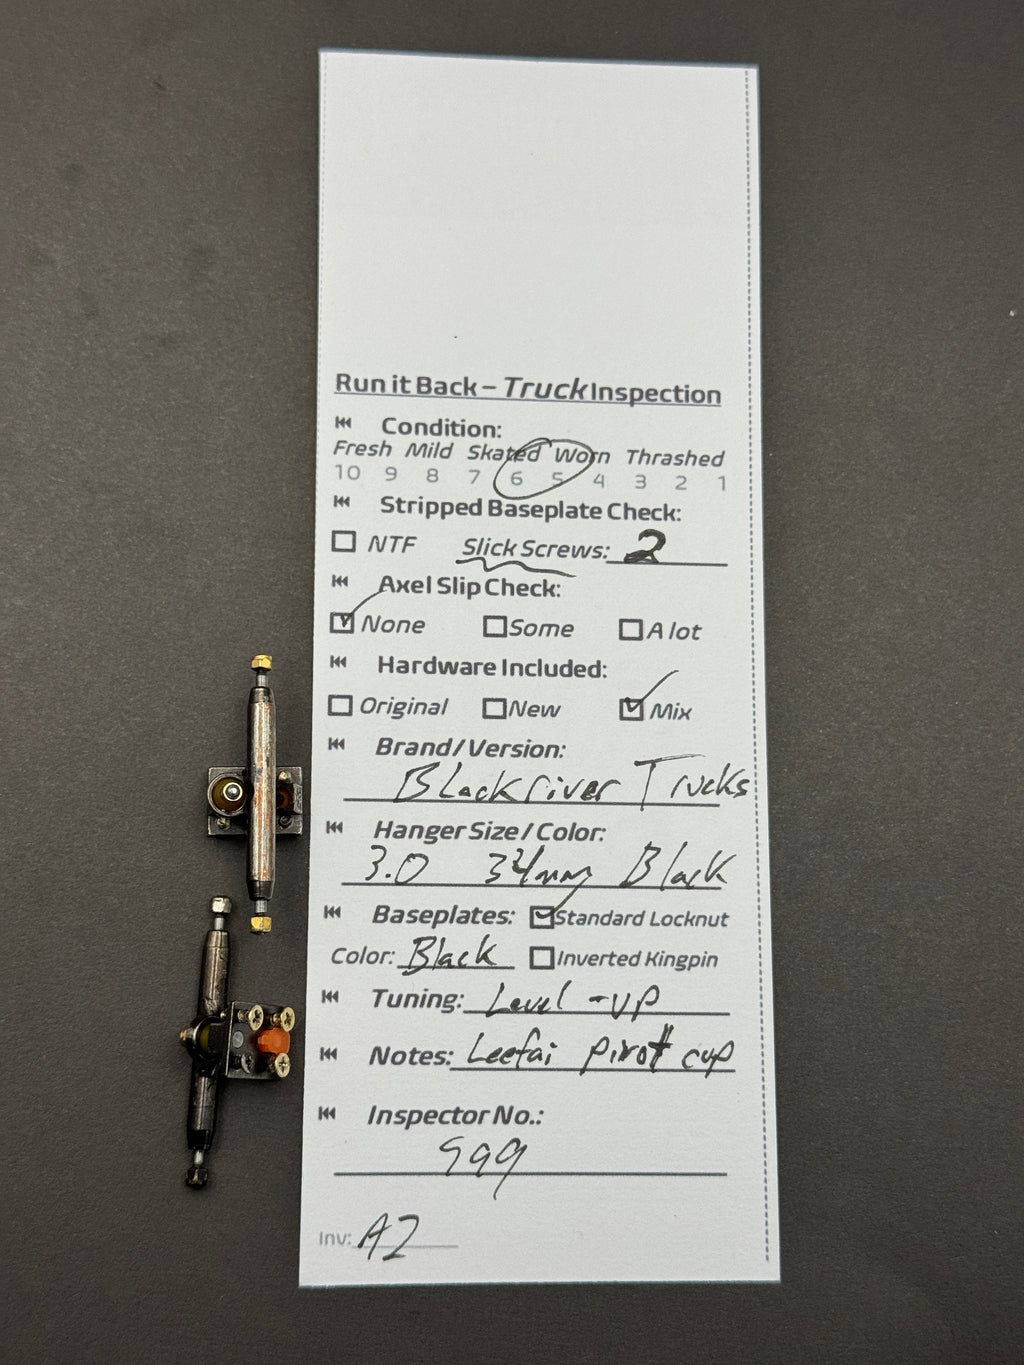 Run it Back – Truck Inspection
Condition:
Fresh Mild Skated Worn Thrashed
10 9 8 7 6 5 4 3 2 1
Stripped Baseplate Check:
NTF Slick Screws: 2
Axel Slip Check:
None Some A lot
Hardware Included:
Original New Mix
Brand/Version:
Blackriver Trucks
Hanger Size/Color:
3.0 34mm Black
Baseplates: Standard Locknut
Color: Black Inverted Kingpin
Tuning: Level-up
Notes: Leefai pivot cup
Inspector No.:
999
Inv: A2